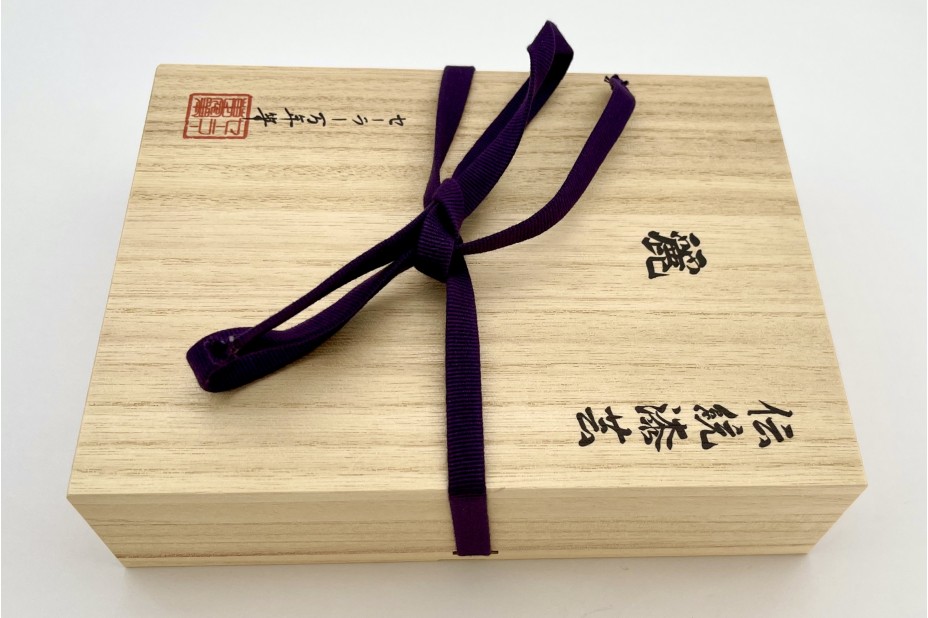 伝統漆芸
麗
セーラー万年筆